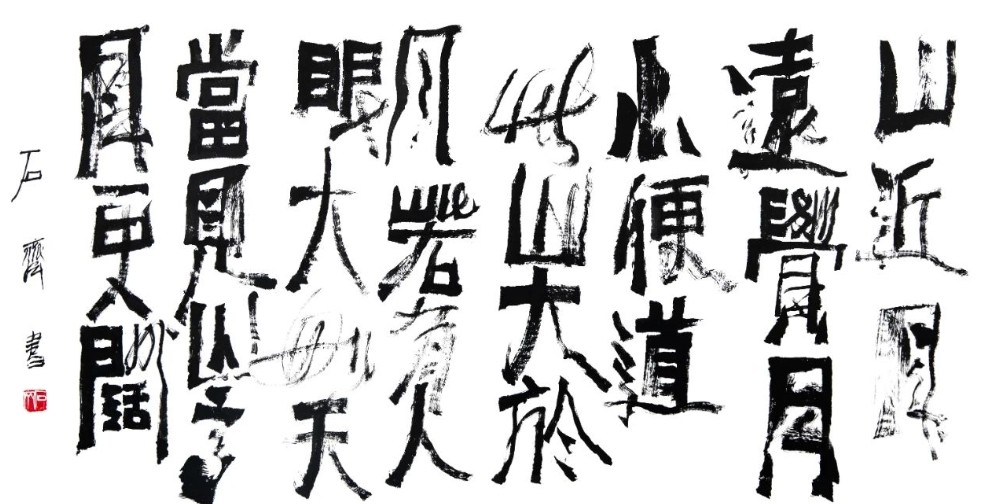 山近月
遠覺月
小便道
此山大於
月若有人
眼大如天
當見山高
月更闊
石齊書